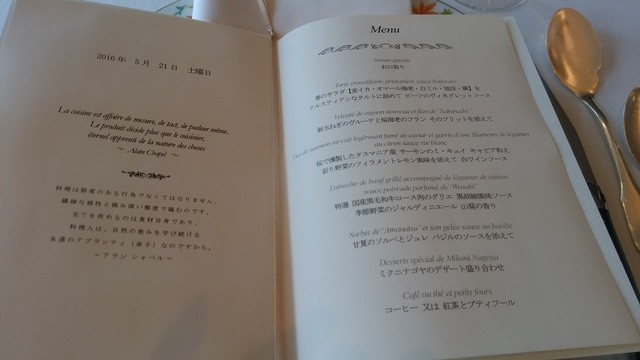 2016年 5月 21日 土曜日
La cuisine est affaire de mesure, de tact, de pudeur même.
La produit décide plus que le cuisinier,
éternel apprenti de nature des choses
~ Alain Chapel ~
料理は節度のある行為でなくてはなりません。
繊細な感性と慎み深い態度で臨むのです。
全てを決めるのは素材自身であり、
料理人は、自然の恵みを学び続ける
永遠のアプランティ（弟子）なのですから。
～アラン シャペル～
Menu
Amuse-gueule
お口取り
Tarte croustillante printanière sauce betterave
クルスティアンなタルトに詰めて ビーツのヴィネグレットソース
Velouté de oignon nouveau et flan de "Sakuraebi"
新玉ねぎのヴルーテと桜海老のフラン そのフリットを添えて
au citron sauce vin blanc
桜で燻製したタスマニア産 サーモンのミ・キュイ キャビア和え
彩り野菜のフィラメントレモン風味を添えて 白ワインソース
Entrecôte de bœuf grillé accompagné de légumes de saison,
sauce poivrade parfumé de "Wasabi"
特選 国産黒毛和牛ロース肉のグリエ 黒胡椒風味ソース
季節野菜のジャルディニエール 山葵の香り
Sorbet de "Amanatsu" et son gelée sauce au basilic
甘夏のソルベとジュレ バジルのソースを添えて
Desserts spécial de Mikuni Nagoya
ミクニナゴヤのデザート盛り合わせ
Café ou thé et petits fours
コーヒー 又は 紅茶とプティフール